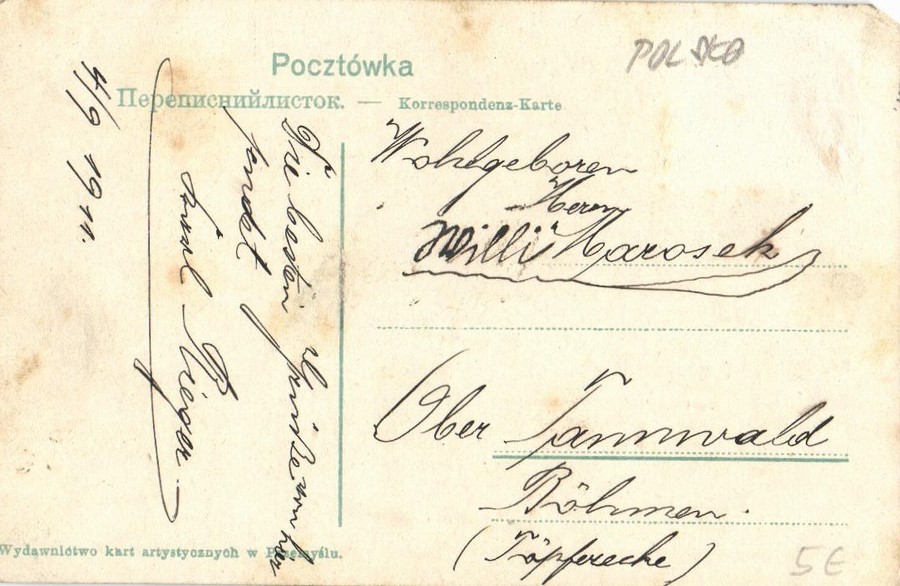 POLSKA
Pocztówka
Переписнийлисток. — Korrespondenz-Karte
4/9 1911.
Die besten
sendet
Rieger
Wohlgeboren
Herrn
Willi Marosek
Ober Tannwald
Böhmen.
(Töpferecke)
Wydawnictwo kart artystycznych w Przemyślu.
5€